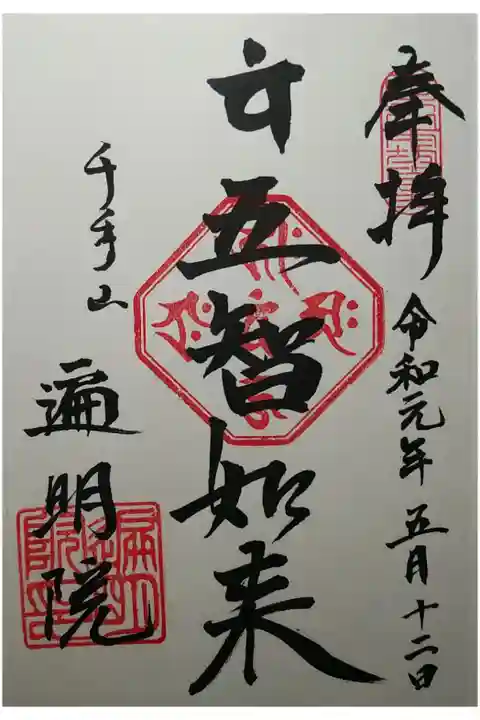 奉拝 令和元年五月十二日
五智如来
千手山
遍明院